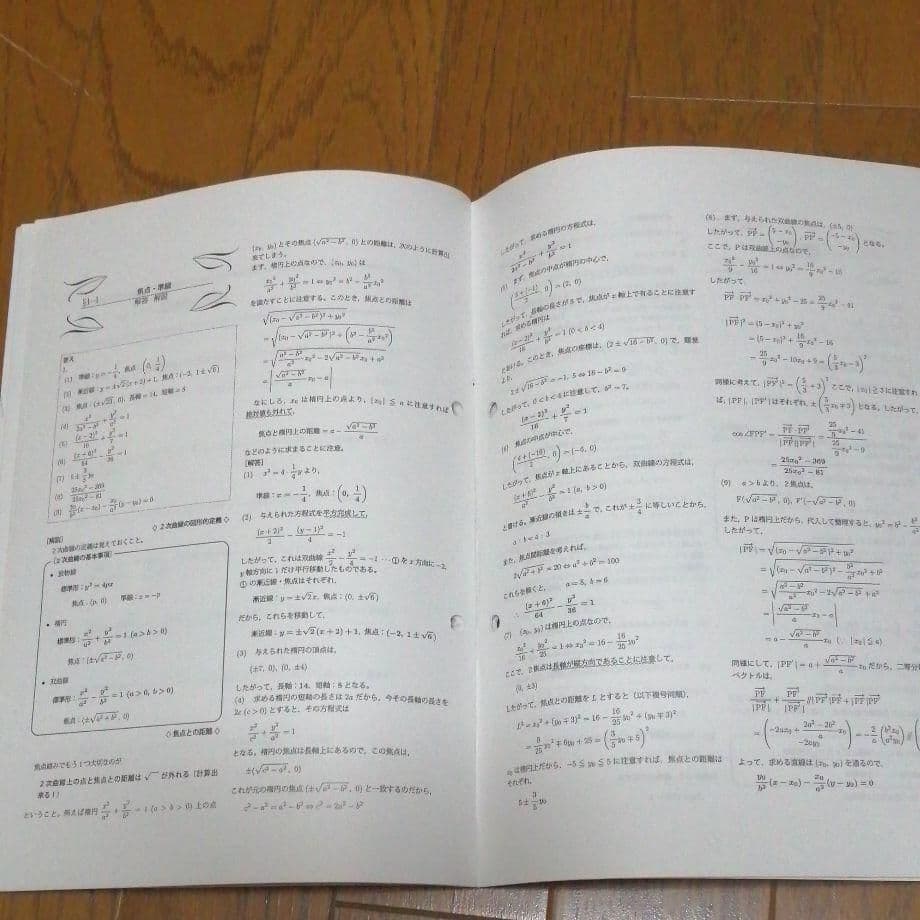 §1-1 焦点・準線
解答・解説
答え
1.
(1) 準線：y=-1/4, 焦点 (0, 1/4)
(2) 漸近線：y=±√2(x+2)+1, 焦点：(-2, 1±√6)
(4) x²/(2a²-b²)+y²/a²=1
(5) (x-2)²/16+y²/7=1
(6) (x+6)²/64-y²/36=1
(7) 5±3/5 y₀
(8) (25x₀²-369)/(25x₀²-81)
(9) y₀/b²(x-x₀)-x₀/a²(y-y₀)=0
◇ 2次曲線の図形的定義 ◇
[解説]
2次曲線の定義は覚えておくこと。
(2次曲線の基本事項)
• 放物線
標準形：y²=4px
焦点：(p, 0) 準線：x=-p
• 楕円
標準形：x²/a²+y²/b²=1 (a>b>0)
焦点：(±√(a²-b²), 0)
• 双曲線
標準形：x²/a²-y²/b²=1 (a>0, b>0)
焦点：(±√(a²+b²), 0)
◇ 焦点との距離 ◇
焦点絡みでもう1つ大切なのが
2次曲線上の点と焦点との距離は√ が外れる（計算出
来る！）
ということ。例えば楕円 x²/a²+y²/b²=1 (a>b>0) 上の点
(x₀, y₀) とその焦点 (√(a²-b²), 0) との距離は、次のように計算出
来てしまう。
まず、楕円上の点なので、(x₀, y₀) は
x₀²/a²+y₀²/b²=1⇔y₀²=b²-b²/a² x₀²
を満たすことに注意する。このとき、焦点との距離は
√((x₀-√(a²-b²))²+y₀²)
=√((x₀-√(a²-b²))²+(b²-b²/a² x₀²))
=√((a²-b²)/a² x₀²-2√(a²-b²)x₀+a²)
=|√(a²-b²)/a x₀-a|
なにしろ、x₀ は楕円上の点より、|x₀|≦a に注意すれば
絶対値も外れて、
焦点と楕円上の距離=a-√(a²-b²)/a
などのように求まることに注意。
[解答]
(1) x²=4・1/4 y より、
準線：x=-1/4, 焦点：(0, 1/4)
(2) 与えられた方程式を平方完成して、
(x+2)²/2-(y-1)²/4=-1
したがって、これは双曲線 x²/2-y²/4=-1 … ① を x 方向に -2,
y 軸方向に 1 だけ平行移動したものである。
① の漸近線・焦点はそれぞれ、
漸近線：y=±√2x, 焦点：(0, ±√6)
だから、これらを移動して、
漸近線：y=±√2(x+2)+1, 焦点：(-2, 1±√6)
(3) 与えられた楕円の頂点は、
(±7, 0), (0, ±4)
したがって、長軸：14, 短軸：8 となる。
(4) 求める楕円の短軸の長さは 2a だから、今その長軸の長さを
2c (c>0) とすると、その方程式は
x²/c²+y²/a²=1
となる。楕円の焦点は長軸上にあるので、この焦点は、
±(√(c²-a²), 0)
これが元の楕円の焦点 (±√(a²-b²), 0) と一致するのだから、
c²-a²=a²-b²⇔c²=2a²-b²
したがって、求める楕円の方程式は、
(5) まず、焦点の中点が楕円の中心で、
((5+(-1))/2, 0)=(2, 0)
(x-2)²/16+y²/b²=1 (0<b<4)
とおける。このとき、焦点の座標は、(2±√(16-b²), 0) で、題意
より、
2±√(16-b²)=-1, 5⇔16-b²=9
したがって、0<b<4 に注意して、b²=7。
(x-2)²/16+y²/7=1
(6) 焦点の中点が中心で、
((4+(-16))/2, 0)=(-6, 0)
したがって、焦点が x 軸上にあることから、双曲線の方程式は、
(x+6)²/a²-y²/b²=1 (a, b>0)
と書ける。漸近線の傾きは ±b/a で、これが ±3/4 に等しいことから、
a:b=4:3
また、焦点間距離を考えれば、
2√(a²+b²)=20⇔a²+b²=100
これらを解くと、 a=8, b=6
∴ (x+6)²/64-y²/36=1
(7) (x₀, y₀) は楕円上の点なので、
x₀²/16+y₀²/25=1⇔x₀²=16-16/25 y₀²
ここで、2焦点は長軸が縦方向であることに注意して、
(0, ±3)
したがって、焦点との距離を L とすると（以下複号同順）、
L²=x₀²+(y₀∓3)²=16-16/25 y₀²+(y₀∓3)²
=9/25 y₀²∓6y₀+25=(3/5 y₀∓5)²
y₀ は楕円上だから、-5≦y₀≦5 に注意すれば、焦点との距離は
それぞれ、
5±3/5 y₀
(8) まず、与えられた双曲線の焦点は、(±5, 0)
ここで、P は双曲線上の点なので、
x₀²/9-y₀²/16=1⇔y₀²=16/9 x₀²-16
したがって、
PF・PF'=x₀²+y₀²-25=25/9 x₀²-41
|PF|²=(5-x₀)²+y₀²
=(5-x₀)²+16/9 x₀²-16
=25/9 x₀²-10x₀+9=(5/3 x₀-3)²
cos∠FPF'=PF・PF'/|PF||PF'|
=(25x₀²-369)/(25x₀²-81)
(9) a>b より、2焦点は、
F(√(a²-b²), 0), F'(-√(a²-b²), 0)
また、P は楕円上だから、代入して整理すると、y₀²=b²-b²
したがって、
|PF|=√((x₀-√(a²-b²))²+y₀²)
=|√(a²-b²)/a x₀-a|
=a-√(a²-b²)/a x₀ (∵ |x₀|≦a)
同様にして、|PF'|=a+√(a²-b²)/a x₀ だから、二等分
ベクトルは、
よって、求める直線は (x₀, y₀) を通るので、
y₀/b²(x-x₀)-x₀/a²(y-y₀)=0